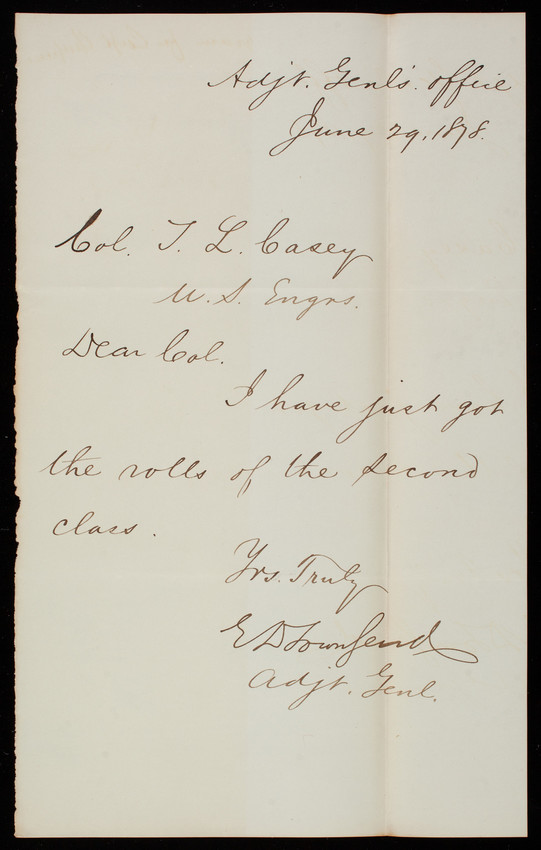 Adjt. Genl's. office
June 29, 1878.
Col. T. L. Casey
U. S. Engrs.
Dear Col.
I have just got
the rolls of the second
class.
Yrs. Truly
E D Townsend
Adjt. Genl.